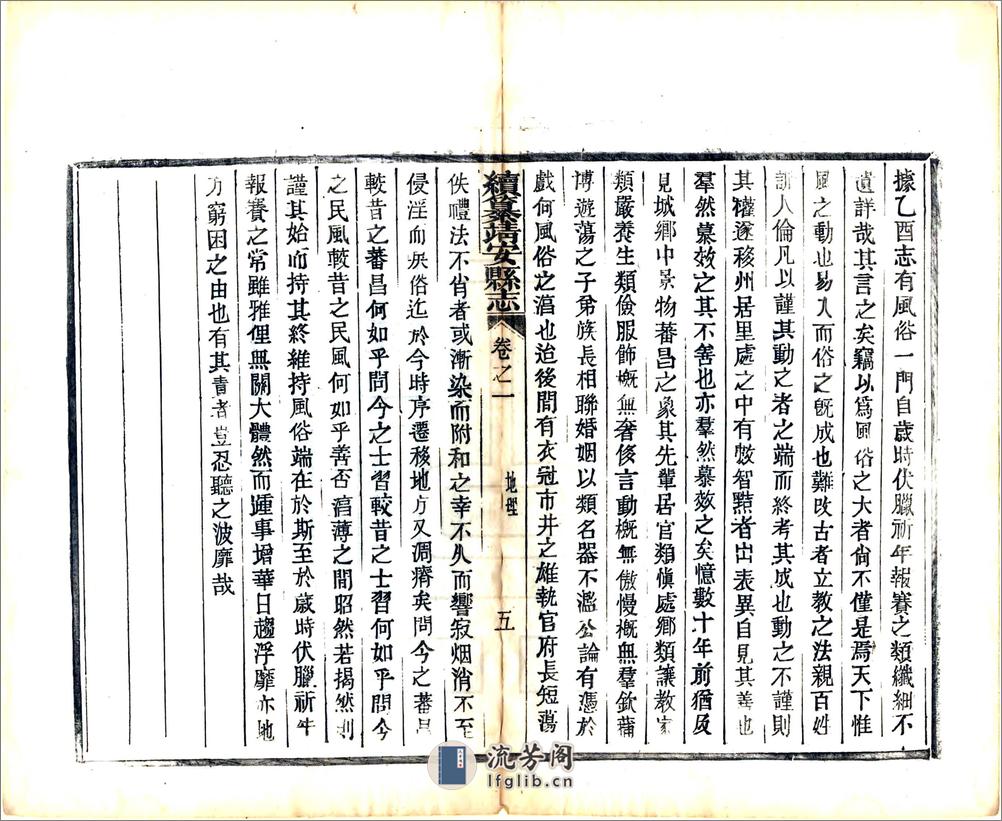 據乙酉志有風俗一門自歲時伏臘祈年報賽之類纖細不
遺詳哉其言之矣竊以爲風俗之大者尙不僅是焉天下惟
風之動也易入而俗之旣成也難改古者立教之法親百姓
訓人倫凡以謹其動之者之端而終考其成也動之不謹則
其權遂移州居里處之中有數智黠者出表異自見其善也
羣然慕效之其不善也亦羣然慕效之矣憶數十年前猶及
見城鄉中景物蕃昌之象其先輩居官類愼處鄉類讓教家
類嚴養生類儉服飾槪無奢侈言動槪無傲慢槪無羣飲蒱
博遊蕩之子弟族長相聯婚姻以類名器不濫公論有憑於
戲何風俗之滀也迨後間有衣冠市井之雄執官府長短蕩
續纂靖安縣志
卷之一
地理
五
佚禮法不肖者或漸染而附和之幸不久而響寂烟消不至
侵淫而戾俗迄於今時序遷移地方又凋瘠矣問今之蕃昌
較昔之蕃昌何如乎問今之士習較昔之士習何如乎問今
之民風較昔之民風何如乎善否滀薄之間昭然若揭然則
謹其始而持其終維持風俗端在於斯至於歲時伏臘祈年
報賽之常雖雅俚無關大體然而踵事增華日趨浮靡亦地
方窮困之由也有其責者豈忍聽之波靡哉
流芳阁
lfglib.cn